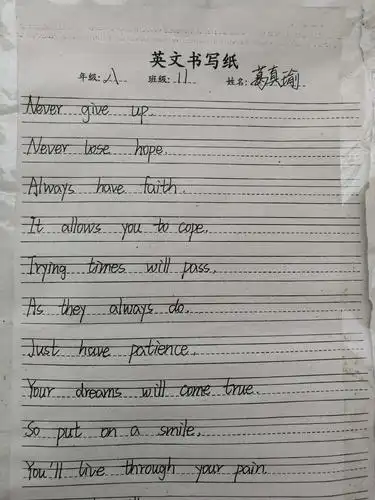 英文书写纸
年级: 八 班级: 11 姓名: 葛真瑜
Never give up.
Never lose hope.
Always have faith.
It allows you to cope.
Trying times will pass,
As they always do.
Just have patience,
Your dreams will come true.
So put on a smile,
You'll live through your pain.